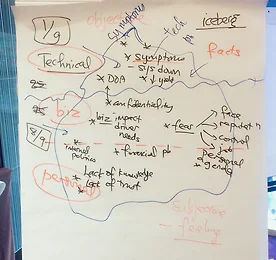 objective
1/9
symptoms
tech
pb
iceberg
Technical
* symptoms
facts
- sys down
* DOA
* confidentiality
biz
8/9
* biz impact
driver
needs
* fear
face
reputat°n
control
job
personal
agenda
* internal
politics
* financial pb
personal
* Lack of knowledge
* Lack of trust
subjective
- feelings